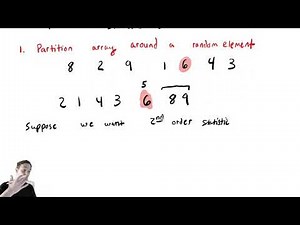 1. Partition array around a random element
8 2 9 1 6 4 3
5
2 1 4 3 6 8 9
Suppose we want 2nd order statistic